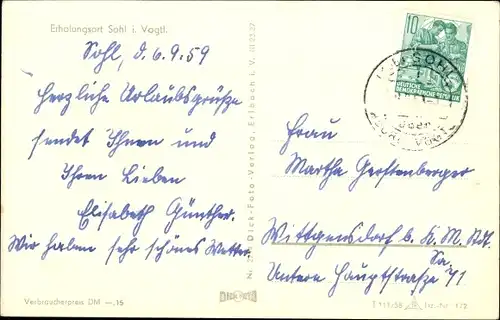 Erholungsort Sohl i. Vogtl.
Sohl, d. 6.9.59
Herzliche Urlaubsgrüße
sendet Ihnen und
Ihren Lieben
Elisabeth Günther.
Wir haben sehr schönes Wetter.
Verbraucherpreis DM —,15
Dick-Foto-Verlag, Erlbach i. V.
DICK FOTO
10
DEUTSCHE
DEMOKRATISCHE REPUBLIK
SOHL
Frau
Martha Gerstenberger
Wittgensdorf b. K. M. Stdt.
Sa.
Untere Hauptstraße 71